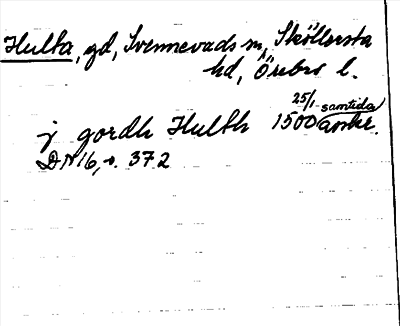 Hulta, gd, Svennevads sn, Sköllersta
hd, Örebro l.
j gordh Hulth 25/1 1500 samtida anskr.
DN 16, s. 372